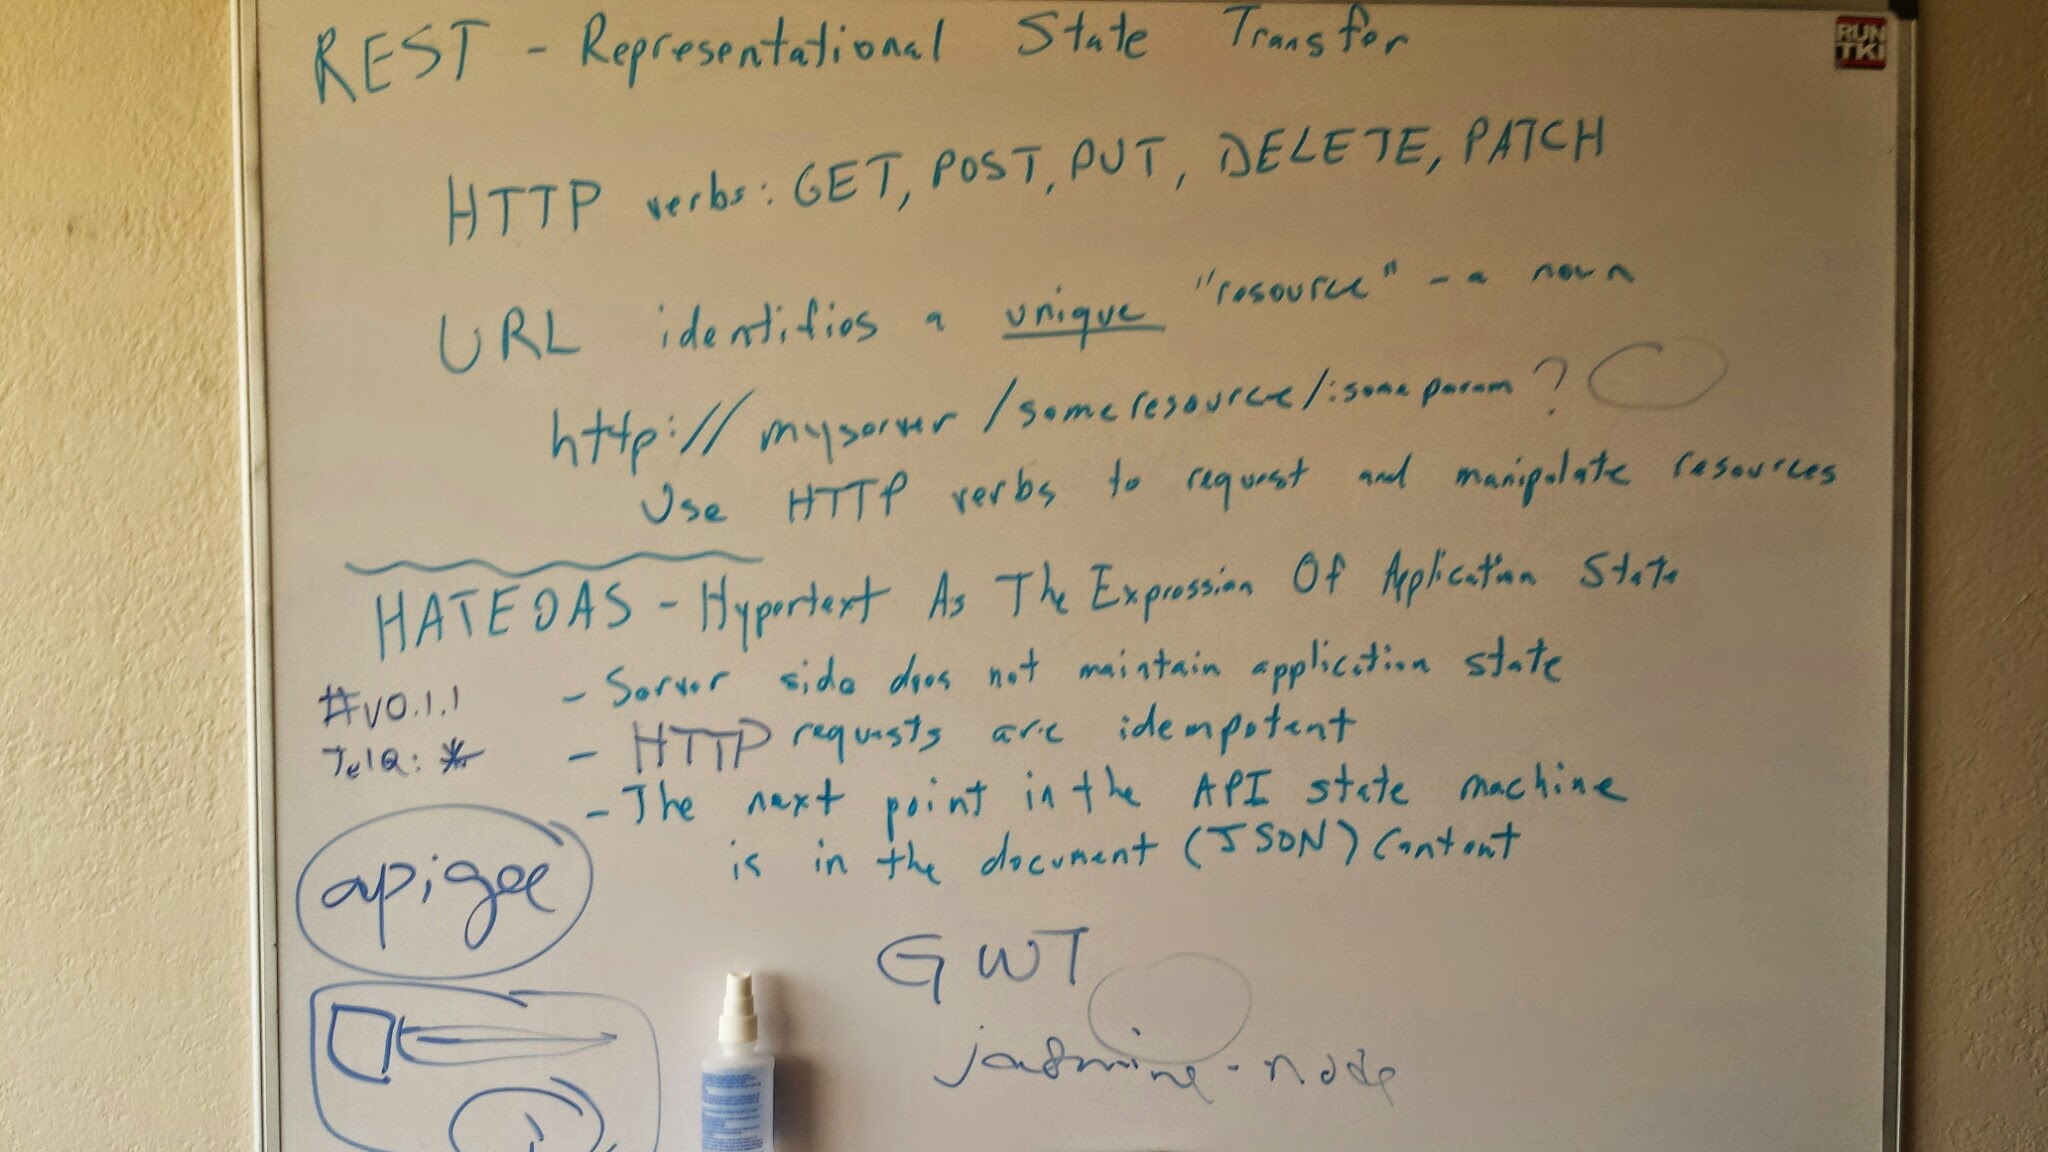 REST - Representational State Transfer
RUN
TKI
HTTP verbs: GET, POST, PUT, DELETE, PATCH
URL identifies a unique "resource" - a noun
http://myserver/someresource/:someparam?
Use HTTP verbs to request and manipulate resources
HATEOAS - Hypertext As The Expression Of Application State
- Server side does not maintain application state
- HTTP requests are idempotent
- The next point in the API state machine
is in the document (JSON) Content
#v0.1.1
TelQ: *
apigee
GWT
jasmine-node